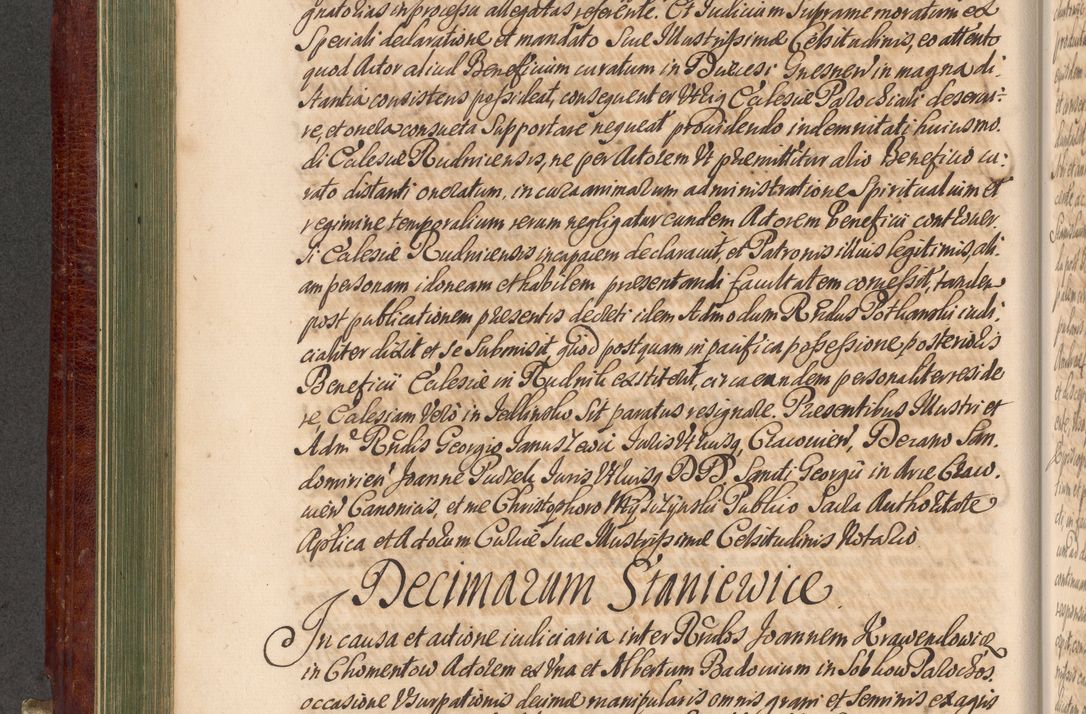 gnatorias in processu allegatas referente. Et Iudicium Supramemoratum ex
Speciali declaratione et mandato Suæ Illustrissimæ Celsitudinis, eo attento
quod Actor aliud Beneficium curatum in Diæcesi Gnesnen̄ in magna di-
stantia consistens possideat, consequenter utriq Ecclesiæ Parochiali deservi-
re, et onera consueta Supportare nequeat providendo indemnitati huiusmo.
di Ecclesiæ Rudnicensis, ne per Actorem Ut præmittitur alio Beneficio cu-
rato distanti oneratum, in cura animarum administratione Spiritualium et
regimine temporalium rerum negligatur eundem Actorem Beneficii controver.
si Ecclesiæ Rudnicensis incapacem declaravit, et Patronis illius legitimis, ali-
am personam idoneam et habilem præsentandi facultatem concessit, tandem
post publicationem præsentis decreti idem Admodum Rn̄dus Pothanski iudi,
cialiter dixit et se Submisit, quod postquam in pacifica possessione posterioris
Beneficii Ecclesiæ in Rudnik extiterit, circa eandem personaliter reside
re, Ecclesiam Vero in Jedlinsko sit paratus resignare. Præsentibus Illustri et
Adm̄ Rn̄dis Georgio Januszewic Iuris Utriusq, Cracovien̄, Decano San-
domirien̄ Joanne Pudzek Iuris Utriusq DD. Sancti Georgii in Arce Craco.
vien̄ Canonicis, et me Christophoro Publico Sacra Authoritate
Aplica et Actorum Curiæ Suæ Illustrissimæ Celsitudinis Notario
Decimarum Staniewice
In causa et actione iudiciaria inter Rn̄dos Joannem Krawendowic
in Chomentow Actorem ex Una et Albertum Badovium in Sobkow Parochos.
occasione Usurpationis decimæ manipularis omnis grani et Seminis ex agris